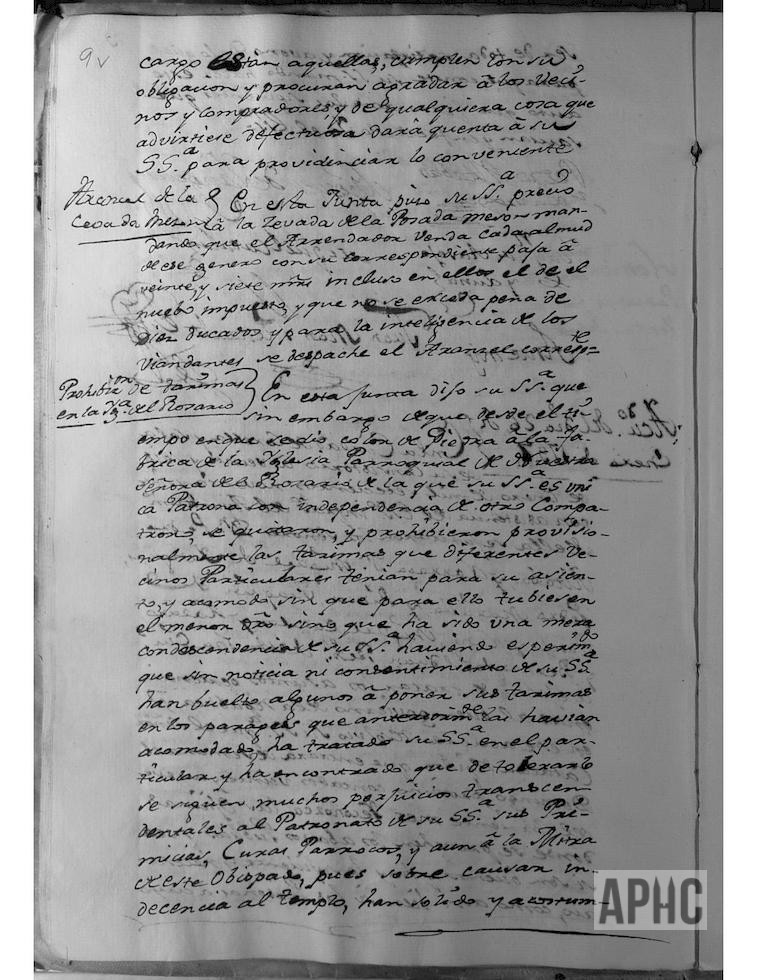 9v
cargo están aquellas, cumplen con su
obligacion y procuran agradar â los veci-
nos y Compradores, y de qualquiera cosa que
advirtiese defectuosa dará quenta â su
SS.ª para providinciar lo conveniente
Aranzel de la
Cevada Meson
En esta Junta puso su SS.ª precio
â la Zevada de la Posada meson man-
dando que el Arrendador venda cada almud
de ese genero con su correspondiente pasa â
veinte, y siete mrs̃ incluso en ellos el de el
nuebo impuesto, y que no se exceda pena de
Diez ducados, y para la inteligencia de los
Viandantes se despache el Aranzel correspte=
Prohibizion de tarimas
en la Ygª. del Rosario
En esta Junta dijo su SS.ª que
sin embargo de que desde el ti-
empo en que se dio colon de Piedra a la Fa-
brica de la Yglesia Parroquial de Nuestra
Señora del Rosario de la que su SS.ª es uni
ca Patrona con independencia de otro Compa-
trono, se quitaron, y prohibieron provisio-
nalmente las tarimas que diferentes Ve-
cinos Particulares tenian para su asien-
to, y acomodo, sin que para ello tubiesen
el menor dr̃o sino que ha sido una mera
condescendencia de su SS.ª haviendo esperimdo
que sin noticia ni consentimiento de su SS.ª
han buelto algunos â poner sus tarimas
en los parages que anteriormte las havian
acomodado, ha tratado su SS.ª en el par-
ticular y ha encontrado que de tolerarlo
se siguen muchos perjuicios transcen-
dentales al Patronato de su SS.ª sus Pri-
micias, Curas Parrocos, y aun â la Mitra
de este Obispado, pues sobre causar in-
decencia al templo, han solido y acostum-
Acu.do
Enero
APHC